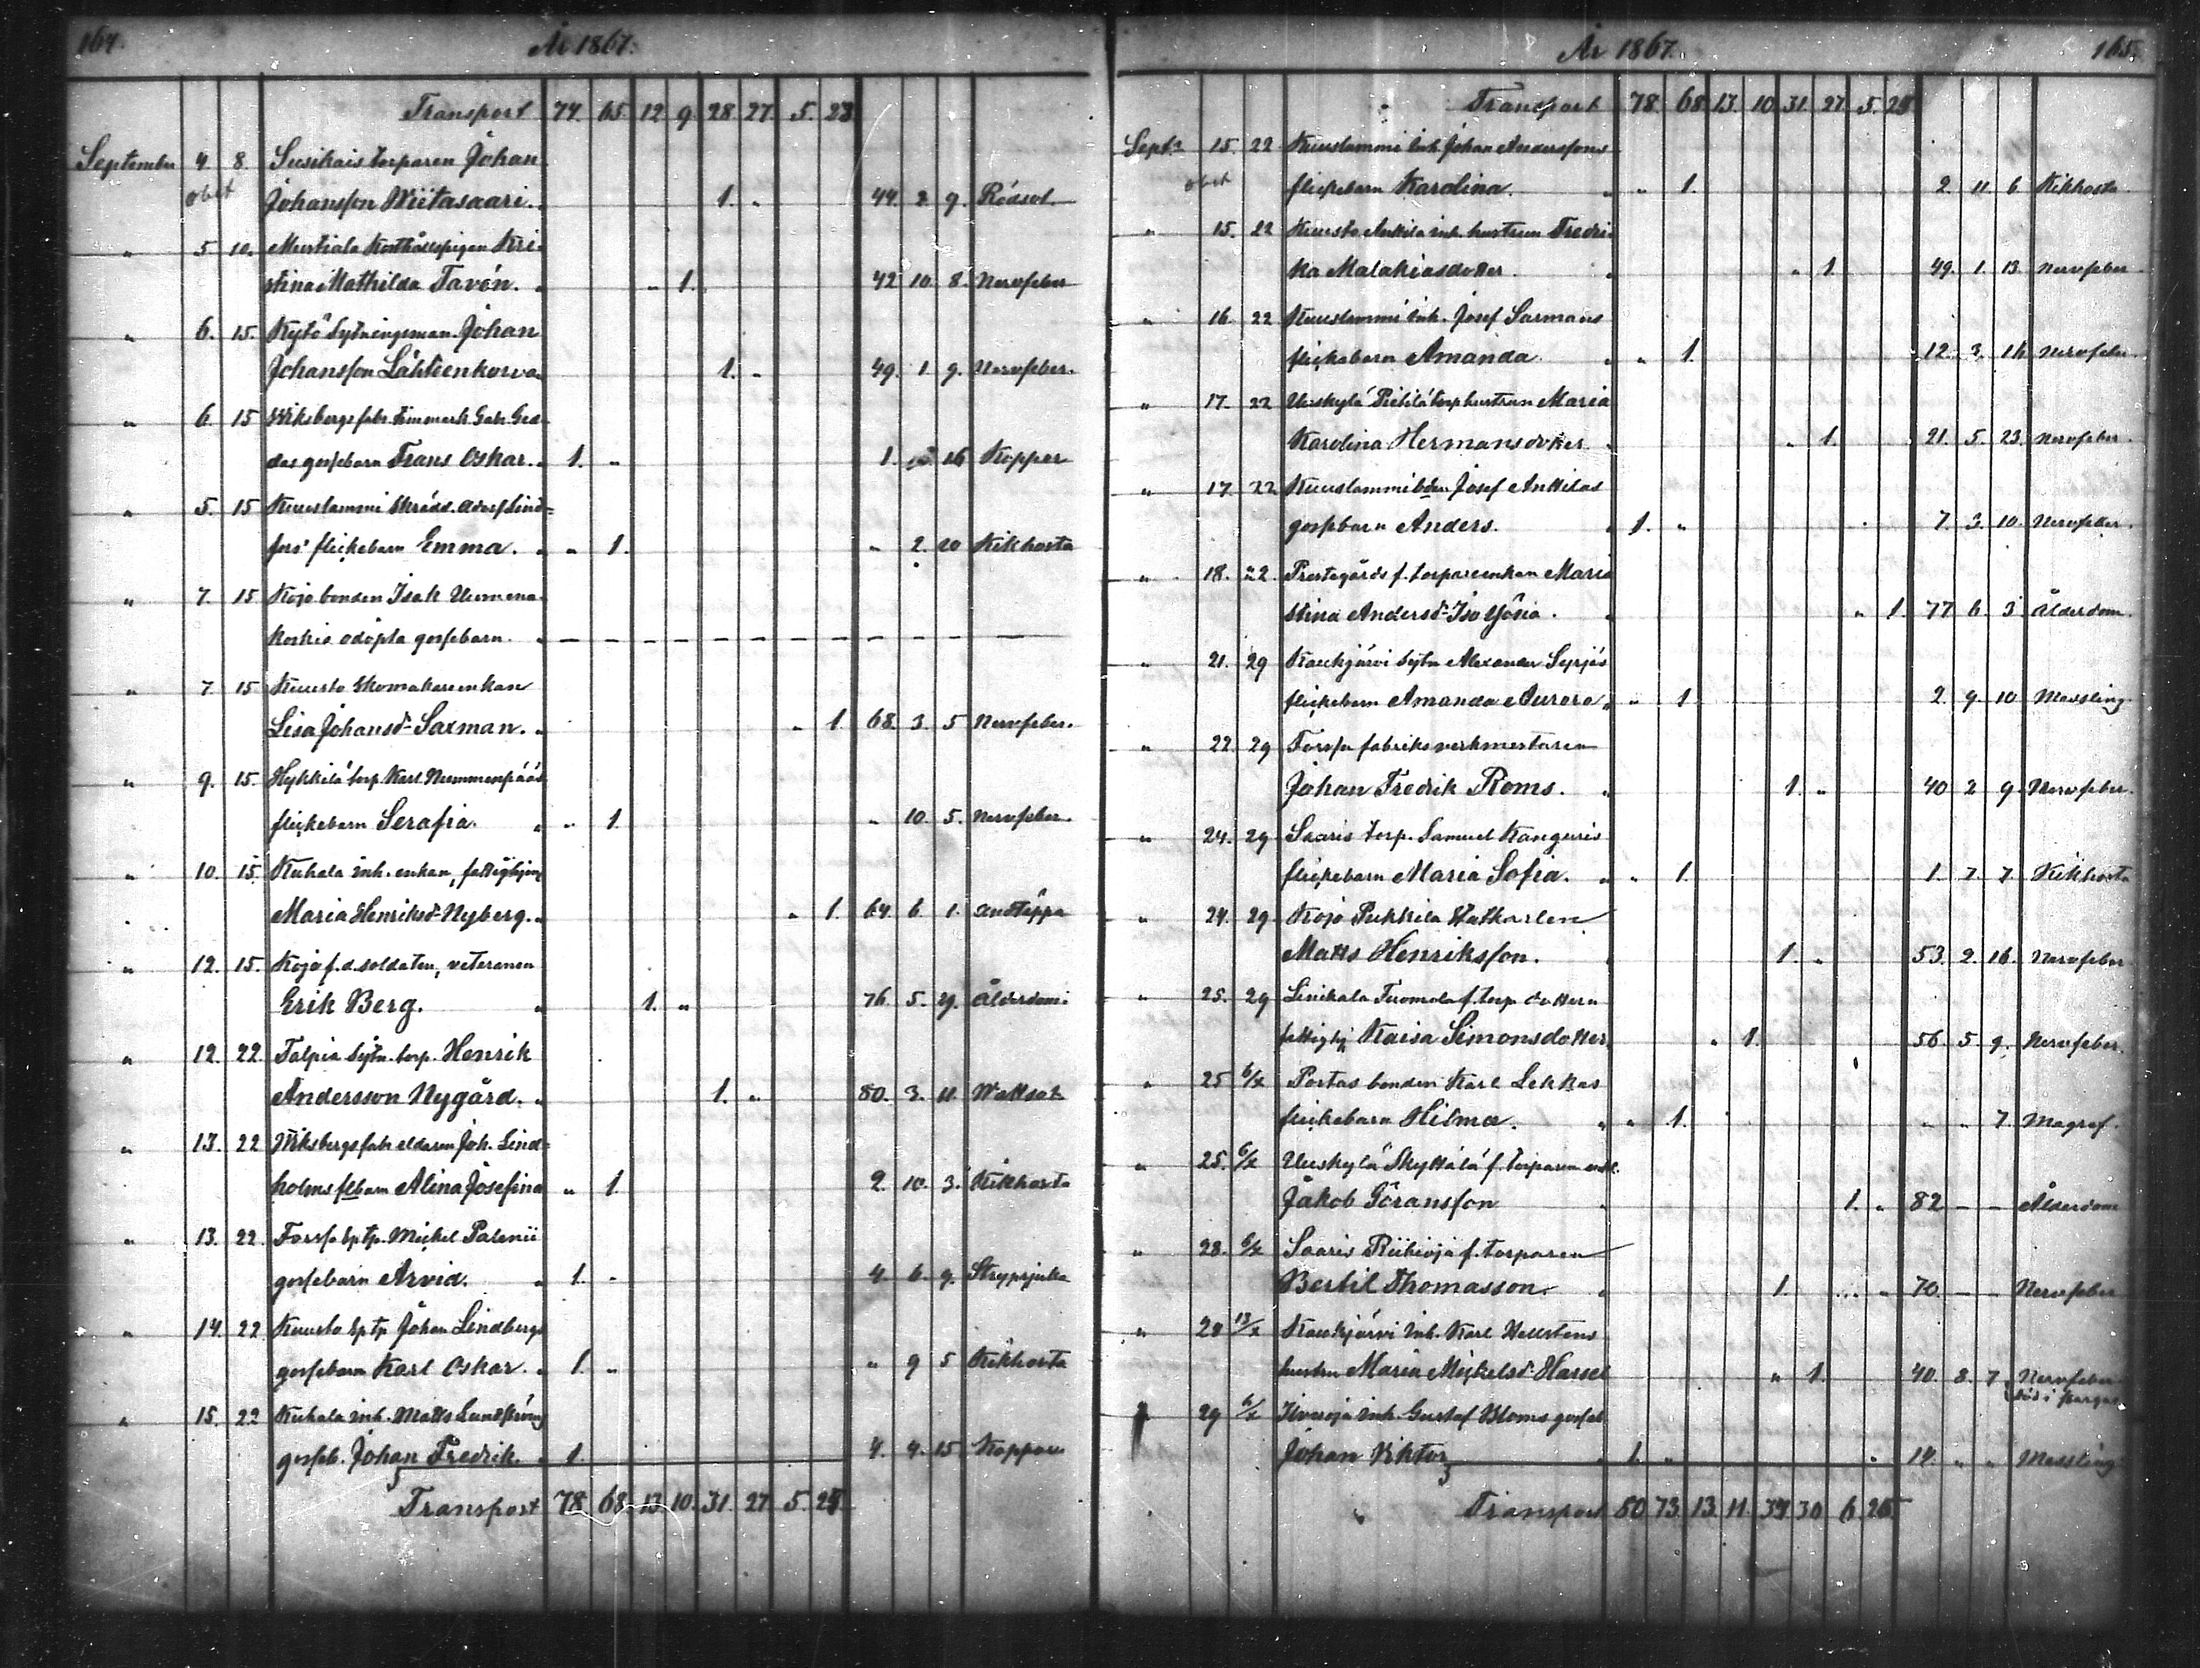 164. År 1867.
Transport 74. 65. 12 9. 28 27. 5. 23
September 4. 8. Susikais torparen Johan
obet Johansson Wiitasaari. 1. „ 44. 2. 9. Rödsot
„ 5 10. Mustiala Kosthållspigan Kri-
stina Mathilda Tavén. „ 1. 42 10. 8. Nervfeber
„ 6. 15. Kytö Sytningsman Johan
Johansson Lähteenkorva 1. „ 49. 1. 9. Nervfeber.
„ 6. 15 Wiksbergs fabr. timmerk. Gab. Gra-
das gossebarn Frans Oskar. 1. „ 1. 16 Koppor
„ 5. 15 Kuuslammi Skrädd. Adolf Lind-
fors' flickebarn Emma. „ 1. „ 2. 20 Kikhosta
„ 7. 15 Kojo bonden Isak Uumena-
koskis odöpta gossebarn. — — — — — — — —
„ 7. 15 Kuusto Skomakareenkan
Lisa Johansd:r Saxman. „ 1. 68. 3. 5 Nervfeber.
„ 9. 15. Hykkilä torp. Karl Nummenpääs
flickebarn Serafia. „ 1. „ 10. 5. Nervfeber.
„ 10. 15. Kuhala inh. enkan, fattighjon
Maria Henriksd:r Nyberg. „ 1. 64. 6. 1. Andtäppa
„ 12. 15. Kojo f.d. soldaten, veteranen
Erik Berg. 1. „ 76. 5. 29. Ålderdom
„ 12. 22 Talpia Sytn. torp. Henrik
Andersson Nygård. 1. „ 80. 3. 11. Wattsot
„ 13. 22 Wiksbergs fabr. eldaren Joh. Lind-
holms flbarn Alina Josefina „ 1. 2. 10. 3. Kikhosta
„ 13. 22. Forssa sptp. Mickel Palenii
gossebarn Arvid. 1. „ 4. 6. 9. Strypsjuka
„ 14. 22 Kuusto sptp. Johan Lindbergs
gossebarn Karl Oskar. 1. „ „ 9 5 Kikhosta
„ 15. 22 Kuhala inh. Matts Lundströms
gosseb. Johan Fredrik. 1. 4. 4. 15 Koppor
Transport 78. 68. 13. 10. 31. 27. 5. 25.
År 1867. 165.
Transport 78. 68. 13. 10. 31. 27. 5. 25
Sept:r 15. 22 Kuuslammi inh. Johan Anderssons
obet flickebarn Karolina. „ 1. 2. 11. 6. Kikhosta
„ 15. 22 Kuusto Anttila inh. hustrun Fredri-
ka Malakiasdotter. „ 1. 49. 1. 13. Nervfeber
„ 16. 22 Kuuslammi inh. Josef Saxmans
flickebarn Amanda. „ 1. 12. 3. 16 Nervfeber.
„ 17. 22 Uuskylä Pietilä torp hustrun Maria
Karolina Hermansdotter „ 1. 21. 5. 23. Nervfeber.
„ 17. 22. Kuuslammi bden Josef Anttilas
gossebarn Anders. 1. „ 7. 3. 10. Nervfeber.
„ 18. 22. Prestegårds f. torpareenkan Maria
Stina Andersd:r Iso Yōsia. „ 1. 77 6. 3. Ålderdom.
„ 21. 29 Kaukjärvi Sytn Alexander Syrjäs
flickebarn Amanda Aurora. „ 1. 2. 9. 10. Messling
„ 22. 29 Forssa fabriksverkmästaren
Johan Fredrik Roms. 1. „ 40 2 9. Nervfeber.
„ 24. 29 Saaris torp. Samuel Kanguris
flickebarn Maria Sofia. „ 1. 1. 7. 7 Kikhosta
„ 24. 29 Kojo Pukkila
Matts Henriksson. 1. „ 53. 2. 16. Nervfeber
„ 25. 29 Linikala Tuomola f. torp. dottern
fattighj Kaisa Simonsdotter „ 1. 56. 5. 9. Nervfeber.
„ 25 6/X Portas bonden Karl Lekkas
flickebarn Hilma. „ 1. „ „ 7. Magref.
„ 25. 6/X Uuskylä Skyttälä f. torparen enkl.
Jakob Göransson 1. „ 82 — — Ålderdom
„ 28. 6/X Saaris Riihioja f. torparen
Bertil Thomasson. 1. „ 70. — — Nervfeber
„ 28 13/X Kaukjärvi inh. Karl Hellstens
hustru Maria Mickelsd:r Hassel „ 1. 40. 8. 7. Nervfeber
död i
„ 29 6/X Ilvesoja inh. Gustaf Bloms gosseb.
Johan Viktor 1. „ 14. „ „ Messling
Transport 80 73. 13. 11. 34 30 6. 26